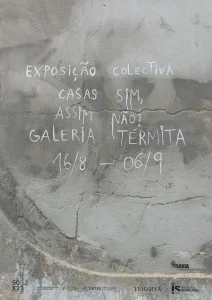 EXPOSIÇÃO COLECTIVA
CASAS SIM,
ASSIM NÃO!
GALERIA TÉRMITA
16/8 — 06/9
TÉRMITA